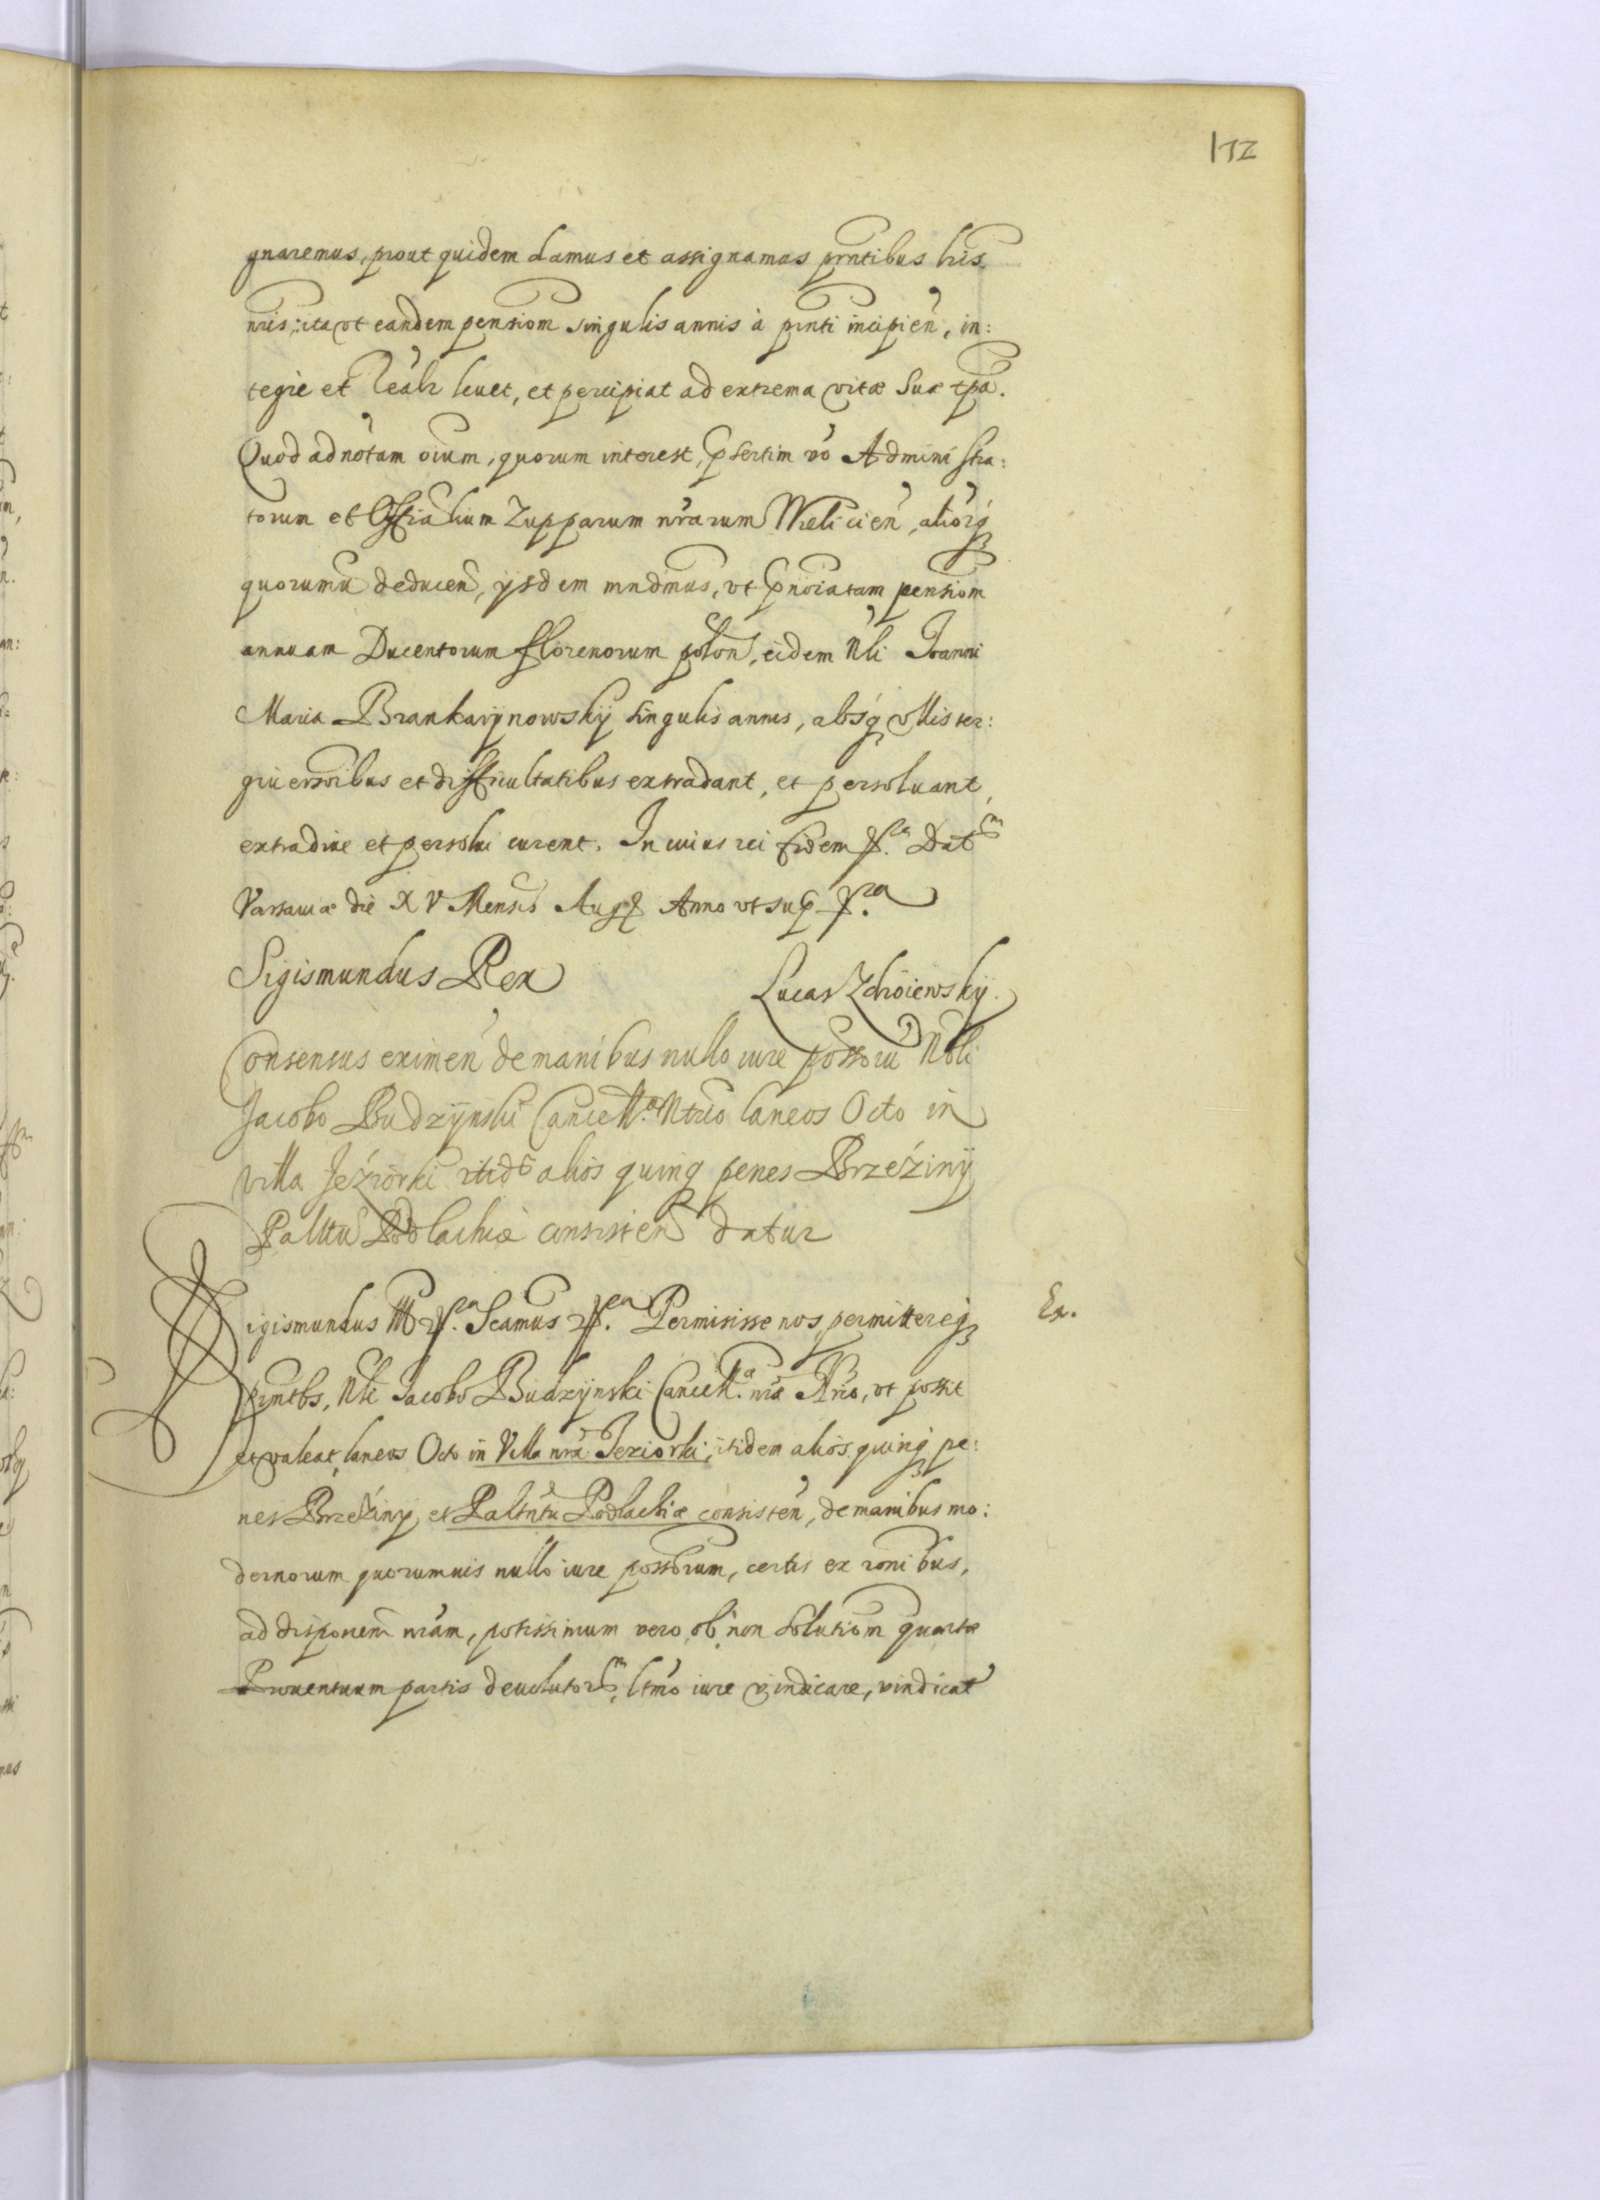 172
gnaremus, prout quidem damus et assignamus pntibus lris
nris, ita vt eandem pensiom singulis annis à pnti incipien, in:
tegre et realr leuet, et percipiat ad extrema vitæ suæ tpa.
Quod ad notam oium, quorum interest, psertim vo Administra:
torum et Offialium Zupparum nrarum Vielicien, aliorq
quorumu deducen, ijsdem mndmus, vt pnoiatam pensiom
annuam Ducentorum florenorum polon, eidem Nli Joanni
Maria Brankarijnowskij singulis annis, absq vllis ter:
giuersoibus et difficultatibus extradant, et persoluant,
extradive et persolui curent. In cuius rei fidem Dat
Varsauiæ die XV Mensis Augq Anno vt sup
Sigismundus Rex Lucas Zdroiewskij.
Consensus eximen de manibus nullo iure possoru Nbli
Jacobo Budzijnski Cancell. Ntrio laneos Octo in
villa Jeźiorki itid alios quinq penes Brzeźinij
Paltu Podlachiæ consisten datur
Sigismundus III Scamus Permisisse nos, permittereq
pntibs, Nli Jacobo Budzijnski Cancell. nræ Nrio, vt possit
et valeat, laneos Octo in Villa nra Jeziorki, itidem alios quinq pe:
nes Brzeźiny, et Paltntu Podlachiæ consisten, de manibus mo:
dernorum quorumuis nullo iure possorum, certis ex ronibus,
ad disponem nram, potissimum vero ob non solutiom quartæ
Prouentuum partis deuolutor, ltmo iure vindicare, vindicat
Ex.